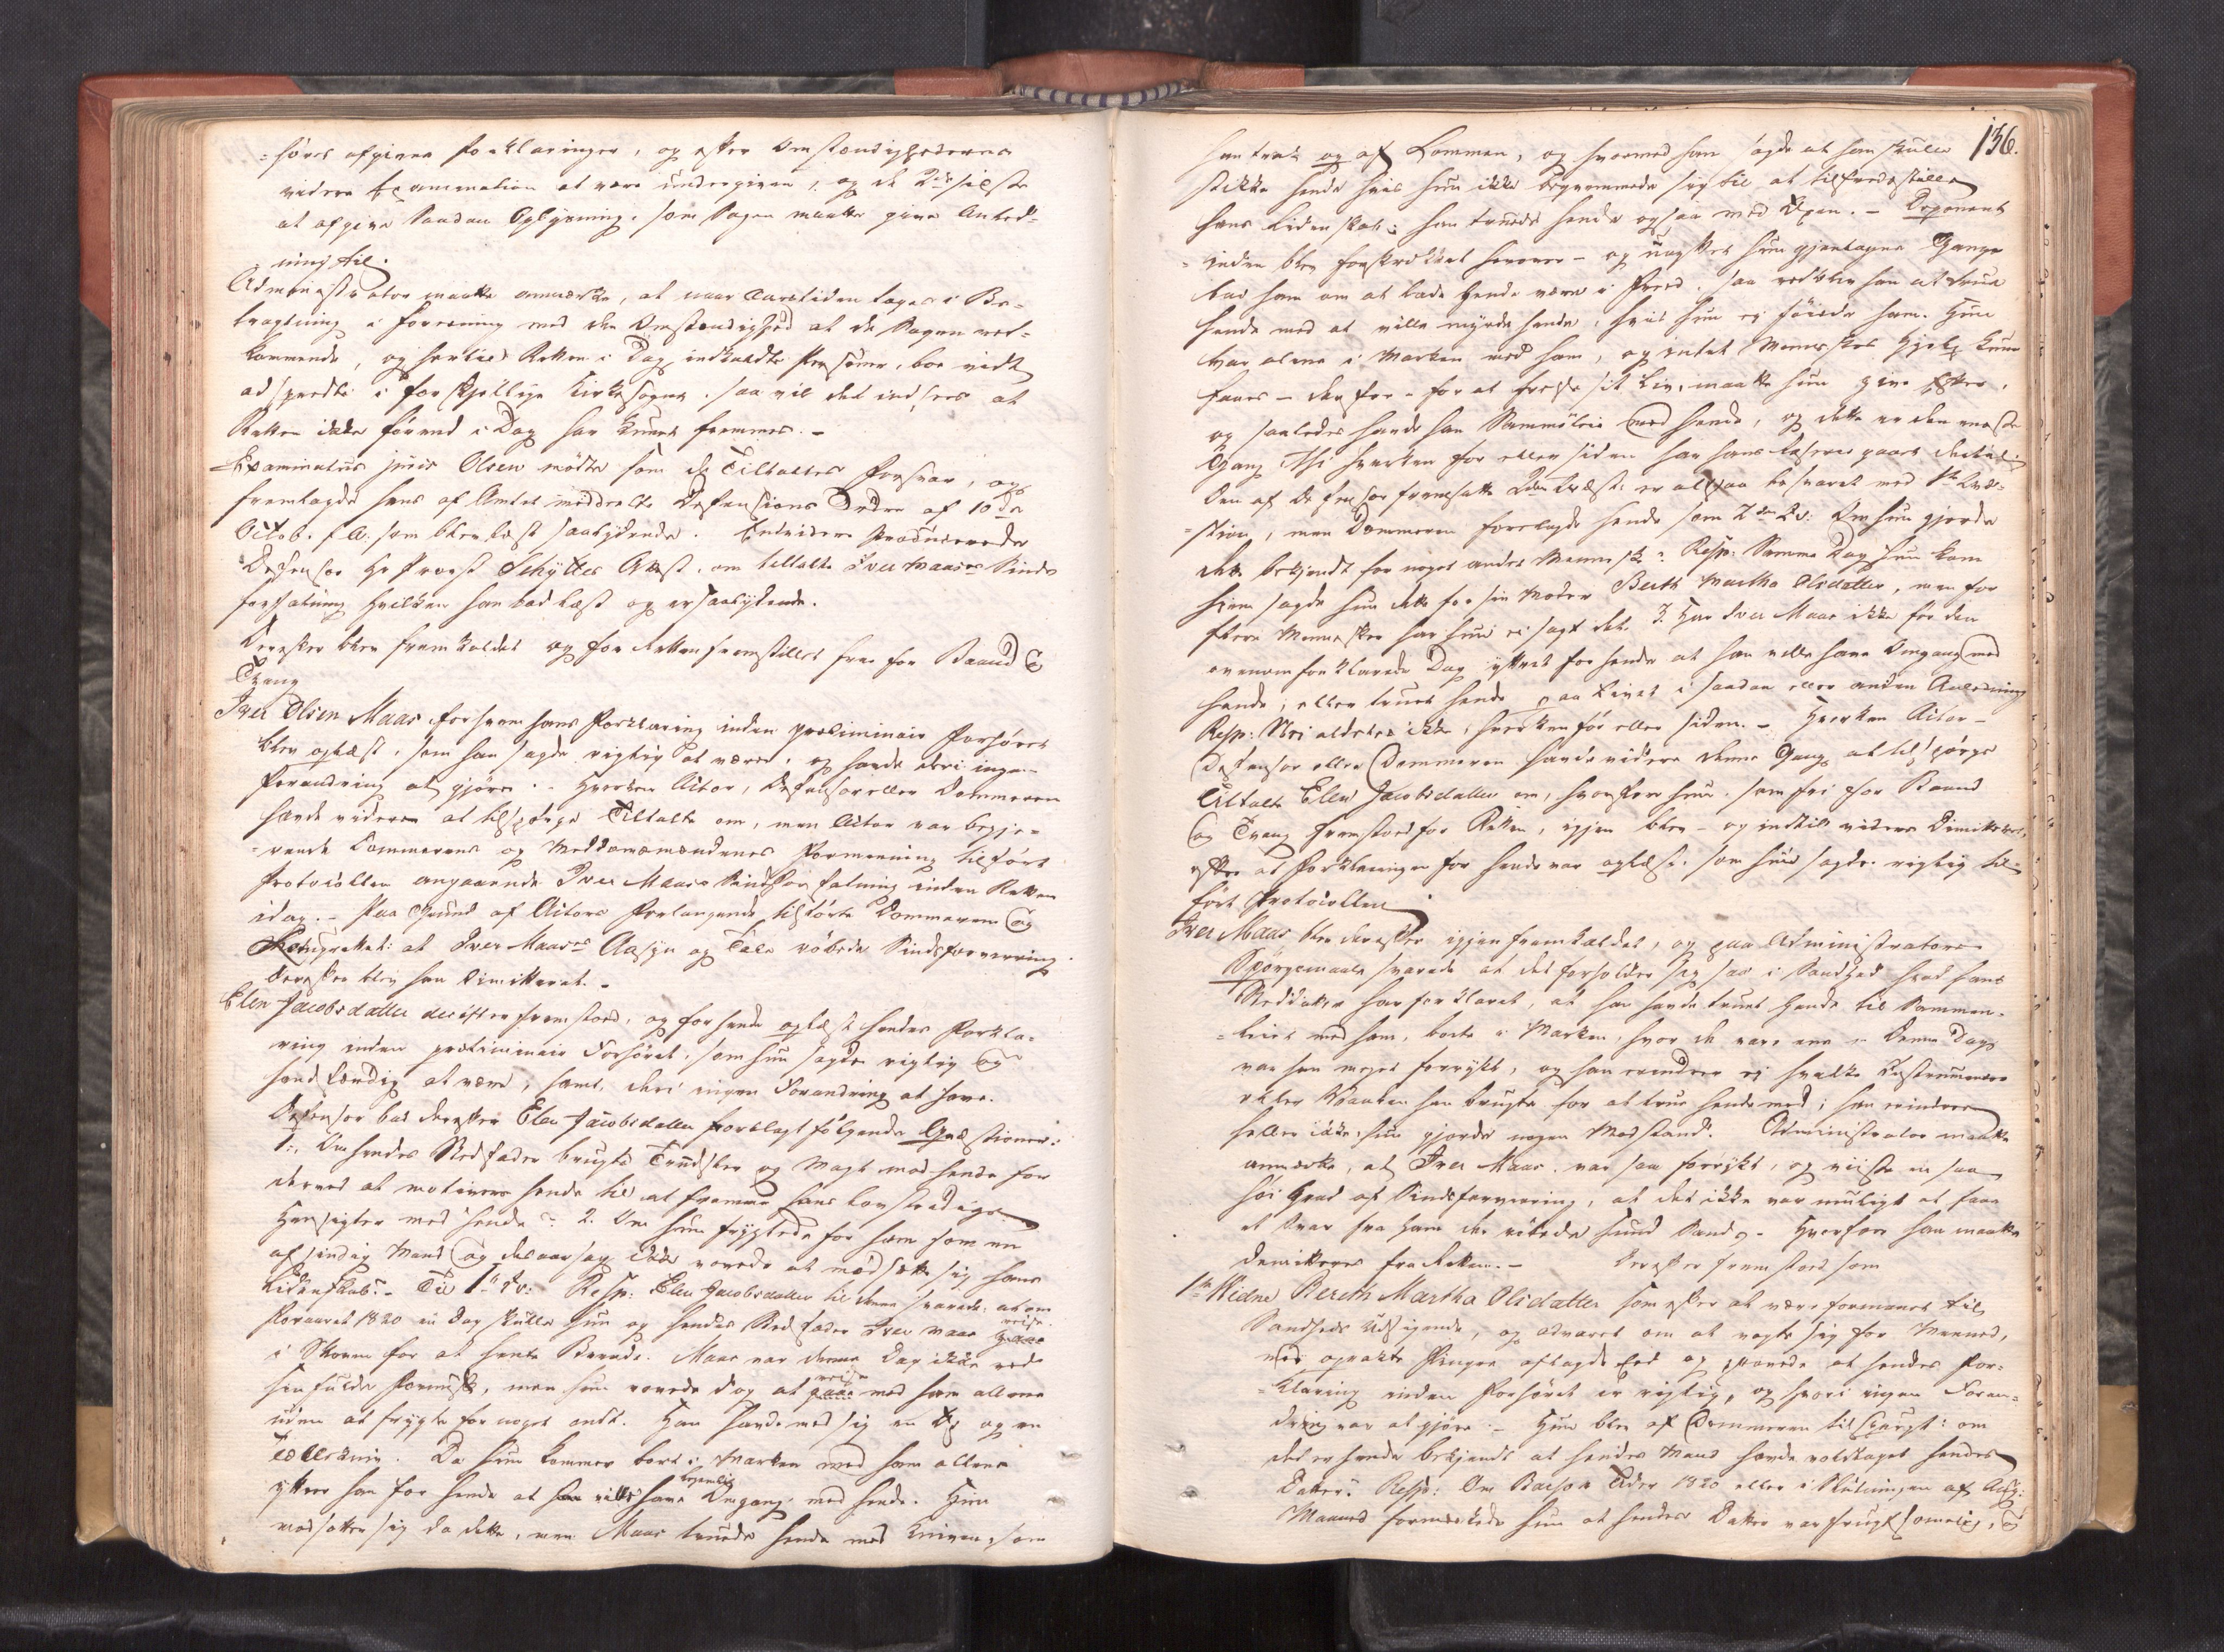 =hörs afgivne Forklaringer, og efter Omstændighederne
videre Examination at være undergiven, og de 2de sidste
at afgive saadan Oplysning, som Sagen maatte give Anled=
ning til.
Administrator maatte anmærke, at naar Aarstiden tages i Be=
tragtning i forening med den Omstændighed at de Sagen ved=
kommende, og hertil Retten i Dag indkaldte Personer, boe vidt
adspredte i forskjellige Kirkesogne, saa vil det indsees at
Retten ikke förend i Dag har kunnet fremmes. -
Examinatus juris Olsen mödte som de Tiltaltes Forsvar, og
fremlagde hans af Amtet meddeelte Defensions Ordre af 10de
Octob. f. A. som blev læst saalydende. Endvidere producerede
Defensor Hr Provst Schyttes Attest, om tiltalte Iver Maases Sinds
forfatning hvilken han bad læst og er saalydende.
Derefter blev fremkaldet og for Retten fremstillet frie for Baand &
Tvang
Iver Olsen Maas forhvem hans Forklaring inden præliminair Forhöret
blev oplæst, som han sagde rigtig at være, og havde deri ingen
Forandring at gjöre. - Hverken Actor, Defensor eller Dommeren
havde videre at tilspörge Tiltalte om, men Actor var begje=
rende Dommerens og Meddomsmændenes Formening tilfört
Protocollen angaaende Iver Maases Sindsforfatning inden Retten
idag. - Paa Grund af Actors Forlangende tilförte Dommeren og
Laugrettet: at Iver Maases Aasyn og Tale röbede Sindsforvirring.
Derefter blev han dimitteret. -
Elen Jacobsdatter derefter fremstoed, og for hende oplæst hendes Forkla=
ring inden præliminair Forhöret, som hun sagde rigtig og
sandfærdig at være, samt, deri ingen Forandring at have.
Defensor bad derefter Elen Jacobsdatter forelagt fölgende Qvæstioner:
1: Om hendes Stedfader brugte Trudsler og Magt mod hende for
derved at motivere hende til at fremme hans lovstridige
Hensigter med hende? 2. Om hun frygtede for ham som en
afsindig Mand og desaarsag ikke vovede at modsætte sig hans
Lidenskab? - Til 1te Qv: Resp: Elen Jacobsdatter til denne svarede: at om
Foraaret 1820 en Dag skulle hun og hendes Stedfader Iver Maas reise
i Skoven for at hente Brænde. Maas var denne Dag ikke ved
sin fulde Fornuft, men hun vovede dog at reise med ham allene
uden at frygte for noget ondt. Han havde med sig en Öx og en
Tollekniv. Da hun kommer bort i Marken med ham allene
yttrer han for hende at han ville have legemlig Omgang med hende. Hun
modsatte sig da dette, men Maas truede hende med Kniven, som
136.
han trak op af Lommen, og hvormed han sagde at han skulle
stikke hende hvis hun ikke beqvemmede sig til at tilfredsstille
hans Lidenskab; han truede hende ogsaa med Öxen. - Deponent=
=inden blev forskrækket herover - og uagtet hun gjentagne Gange
bad ham om at lade hende være i Fred, saa vedblev han at true
hende med at ville myrde hende, hvis hun ej föiede ham. Hun
var alene i Marken med ham, og intet Menneskes Hjelp kunne
faaes - derfor - for at frelse sit Liv, maatte hun give efter,
og saaledes havde han Sammleie med hende, og dette er den eneste
Gang thi hverken for eller siden har hans
Den af Defensor fremsatte 2den Qvæst: er altsaa besvaret med 1te Qvæ=
=stion, men Dommeren forelagde hende som 2den Qv: Om hun gjorde
dette bekjendt for noget andet Menneske? Resp: Samme Dag hun kom
hjem sagde hun dette for sin Moder Berth Martha Olsdatter, men for
flere Mennesker har hun ei sagt det. 3. Har Iver Maas ikke för den
ovenomforklarede Dag yttret for hende at han ville have Omgang med
hende, eller truet hende paa Livet i saadan eller anden Anledning
Resp: Nei aldeles ikke, hverken för eller siden. - Hverken Actor -
Defensor eller Dommeren havde videre denne Gang at tilspörge
Tiltalte Elen Jacobsdatter om, hvorfor hun, som fri for Baand
og Tvang fremstoed for Retten, igjen blev - og indtil videre dimitteret,
efter at Forklaringen for hende var oplæst, som hun sagde rigtig til=
fört Protocollen
Iver Maas blev derefter igjen fremkaldet, og paa Administrators
Spörgsmaale svarede at det forholder sig saa i Sandhed hvad hans
Steddatter har forklaret, at han havde truet hende til Sammen=
=leiet med ham, borte i Marken, hvor de vare ene - Denne Dag
var han meget forrykt, og han erindrer ej hvilke Instrumenter
eller Vaaben han brugte for at true hende med; han erindrer
heller ikke, hun gjorde nogen Modstand. Administrator maatte
anmærke, at Iver Maas var saa forrykt, og viiste en saa
höi Grad af Sindsforvirring, at det ikke var muligt at faae
et Svar fra ham der röbede sund Sands. - Hvorfor han maatte
dimitteres fra Retten. - Derefter fremstoed som
1te Vidne Bereth Martha Olsdatter som efter at være formanet til
Sandheds Udsigende, og advaret om at vogte sig for Meeneed,
med oprakte Fingre aflagde Eed og provede at hendes For=
=klaring inden Forhöret er rigtig, og hvori ingen Foran=
dring var at gjöre. - Hun blev af Dommeren tilspurgt: om
det er hende bekjendt at hendes Mand havde voldtaget hendes
Datter? Resp: Om Barsok Tider 1820 eller i Slutningen af Aug:
Maaned formærkede hun at hendes Datter var frugtsommelig, og